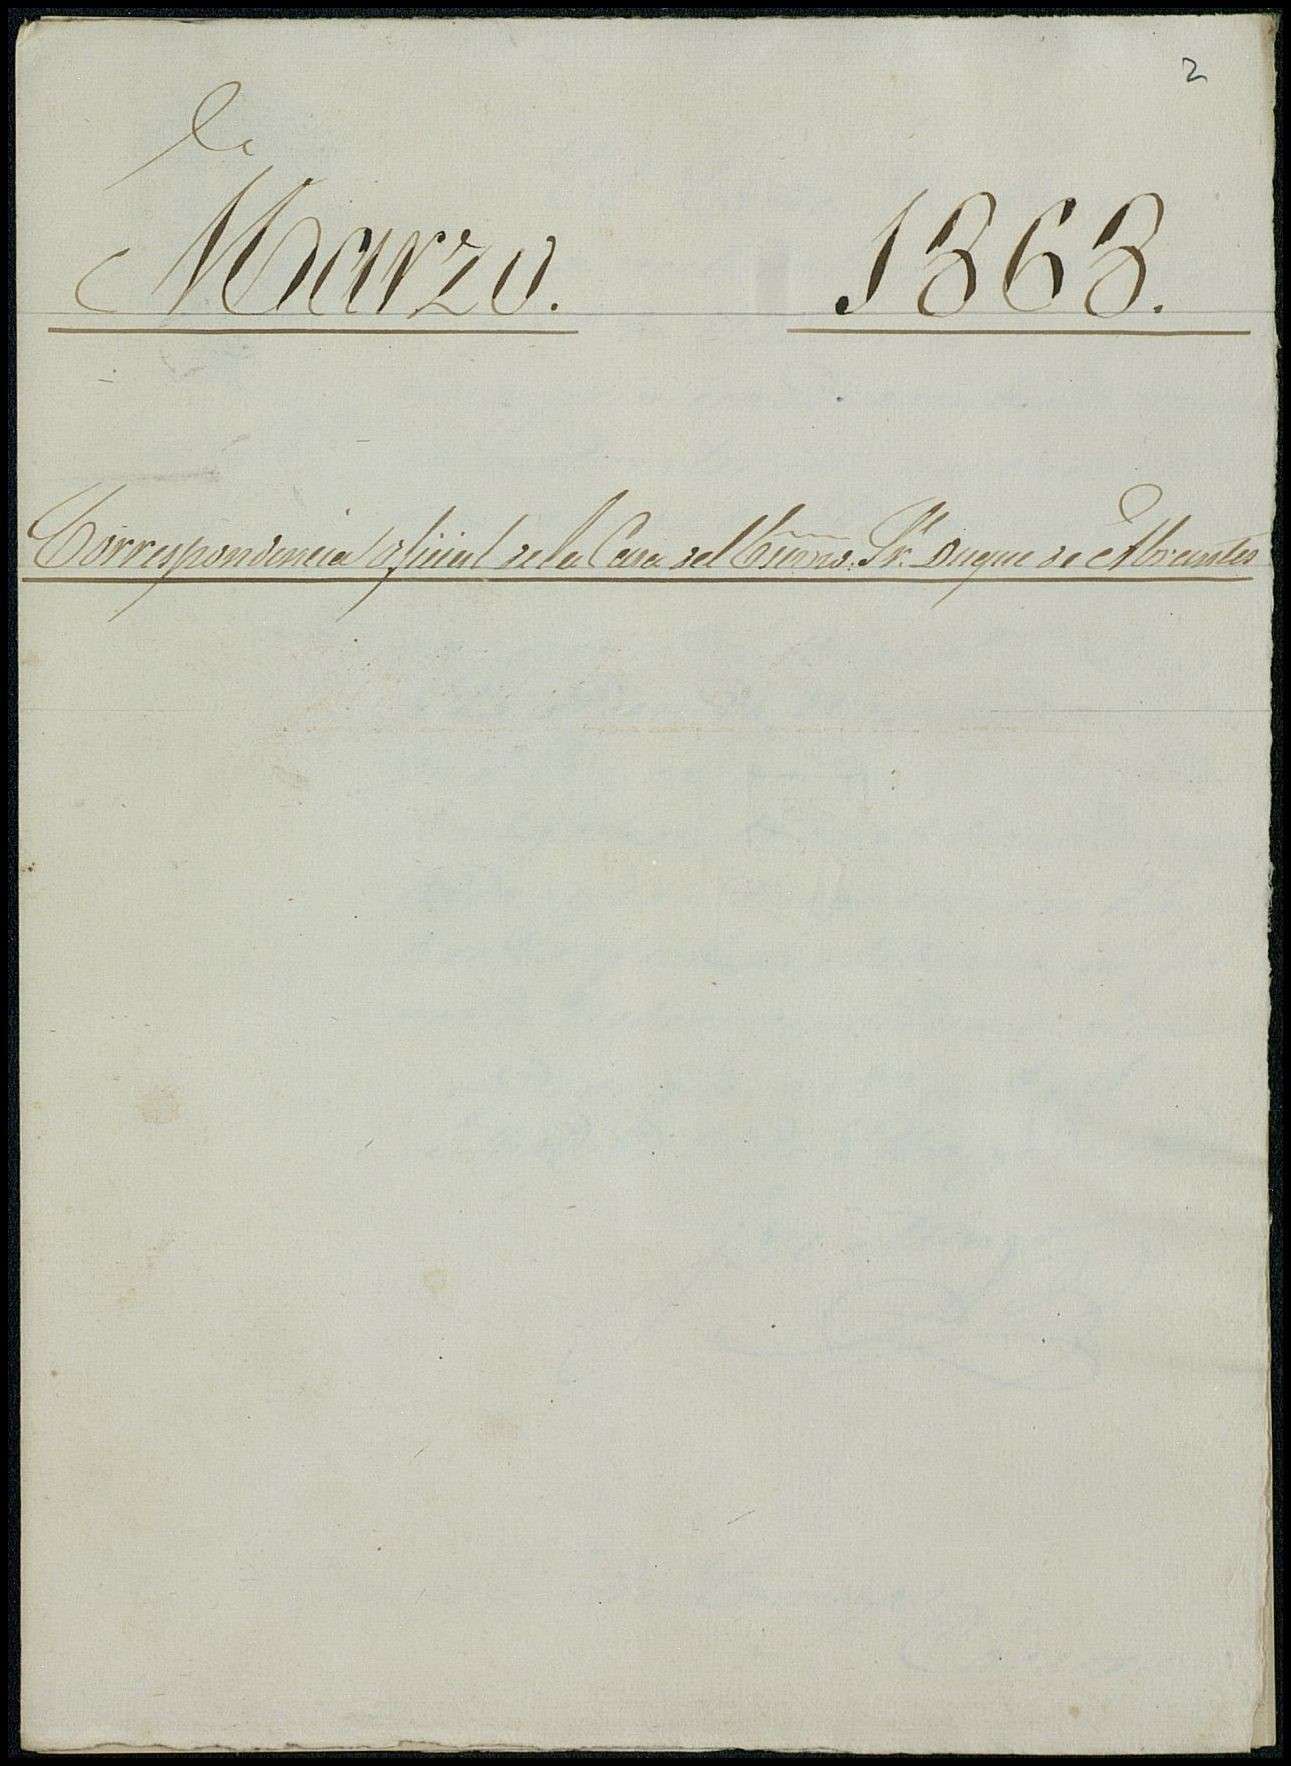 2
Marzo. 1868.
Correspondencia Oficial de la Casa del Excmo. Sr. Duque de Abrantes